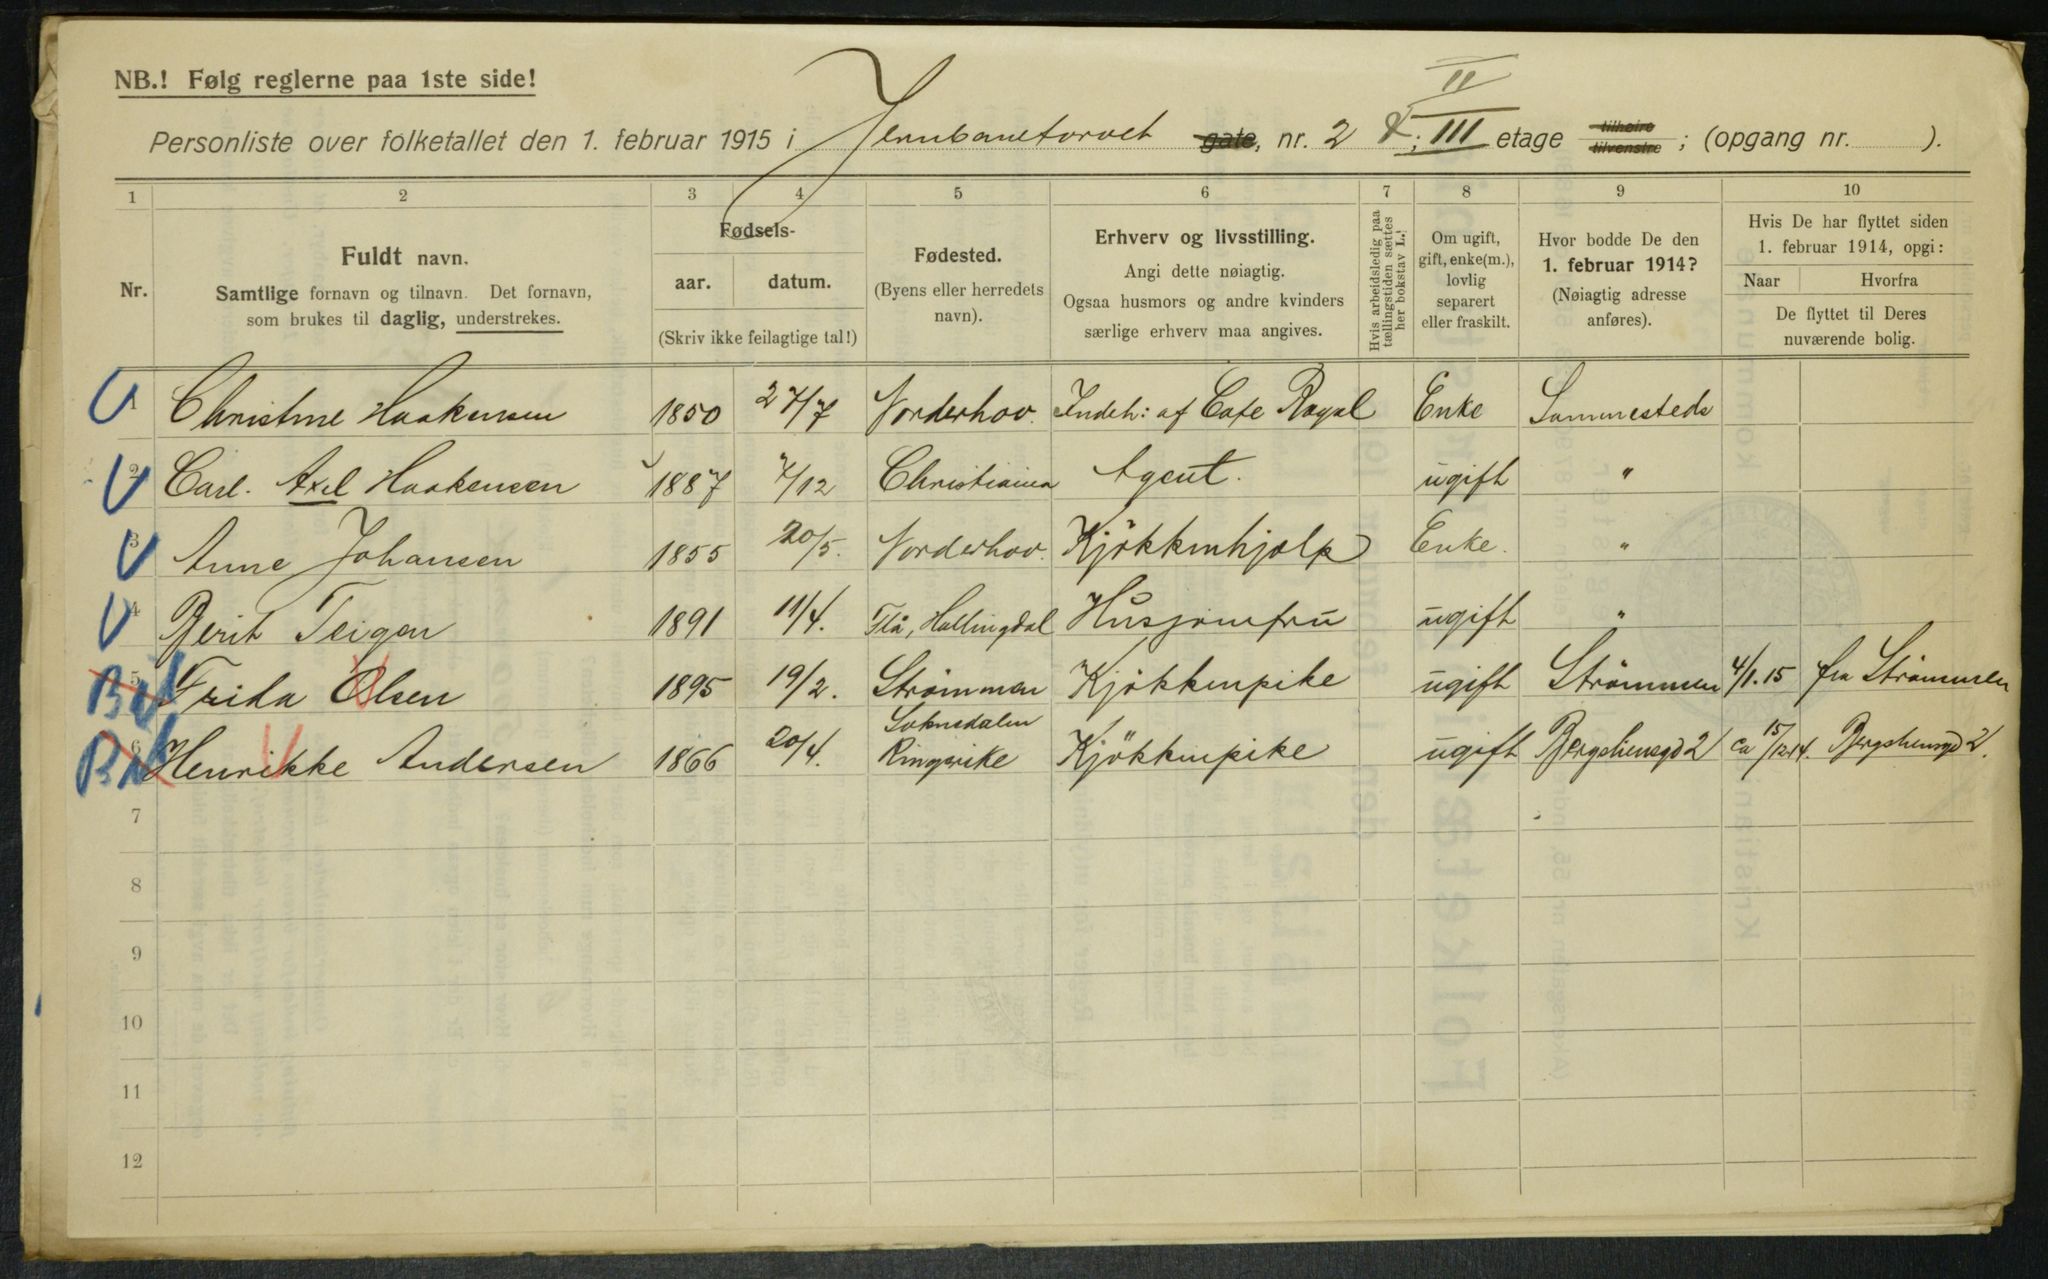 NB.! Følg reglerne paa 1ste side!
II
Personliste over folketallet den 1. februar 1915 i Jernbanetorvet gate, nr. 2 & ; III etage tilhøire tilvenstre ; (opgang nr. ).
1 2 3 4 5 6 7 8 9 10
Nr.
Fuldt navn.
Samtlige fornavn og tilnavn. Det fornavn,
som brukes til daglig, understrekes.
Fødsels-
aar. datum.
(Skriv ikke feilagtige tal!)
Fødested.
(Byens eller herredets
navn).
Erhverv og livsstilling.
Angi dette nøiagtig.
Ogsaa husmors og andre kvinders
særlige erhverv maa angives.
Hvis arbeidsledig paa
tællingstiden sættes
her bokstav L.!
Om ugift,
gift, enke(m.),
lovlig
separert
eller fraskilt.
Hvor bodde De den
1. februar 1914?
(Nøiagtig adresse
anføres).
Hvis De har flyttet siden
1. februar 1914, opgi:
Naar Hvorfra
De flyttet til Deres
nuværende bolig.
1 Christine Haakensen 1850 27/7 Norderhov. Indeh: af Cafe Royal Enke Sammesteds
2 Carl. Axel Haakensen 1887 7/12 Christiania Agent. ugift "
3 Anne Johansen 1855 20/5. Norderhov. Kjøkkenhjælp Enke. "
4 Berit Teigen 1891 11/4. Flå, Hallingdal Husjomfru ugift "
5 Frida Olsen 1895 19/2. Strømmen Kjøkkenpike ugift Strømmen 4/1.15 fra Strømmen
6 Henrikke Andersen 1866 20/4. Soknedalen Ringerike Kjøkkenpike ugift Bergshiensgd 2 ca 15/12 14. Bergshiensgd 2.
7
8
9
10
11
12